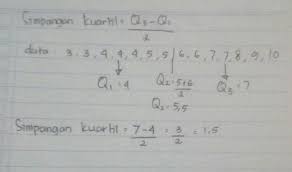 Simpangan kuartil = Q₃ - Q₁
2
data : 3, 3, 4, 4, 4, 5, 5 | 6, 6, 7, 7, 8, 9, 10
Q₁ = 4
Q₂ = 5+6
2
Q₃ = 7
Q₂ = 5,5
Simpangan kuartil = 7-4 = 3 = 1,5
2 2